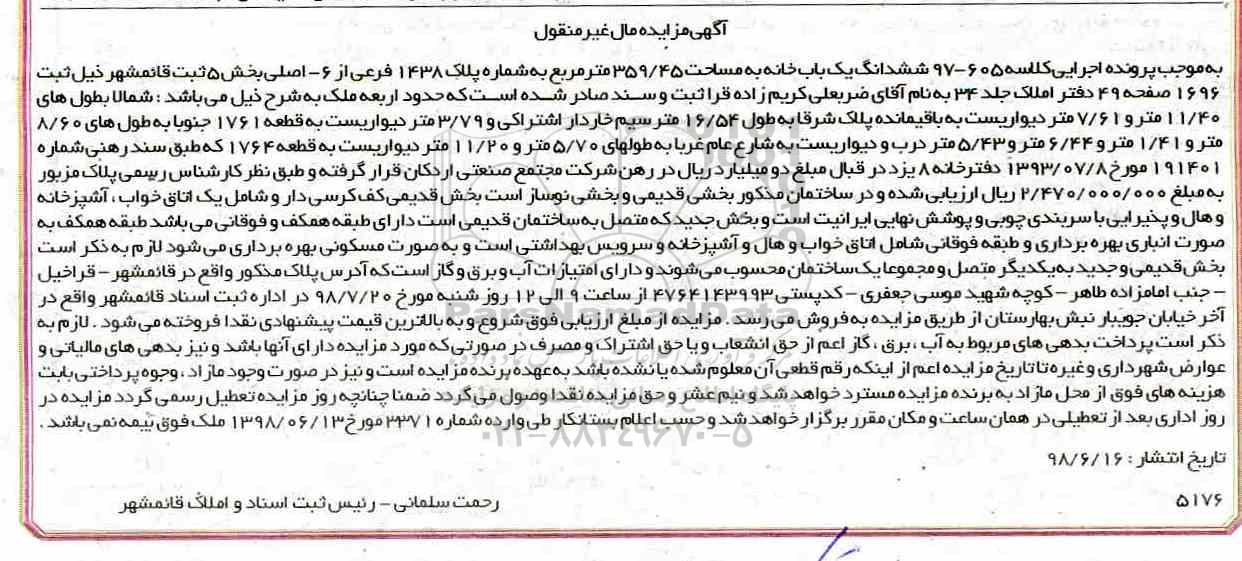 آگهی مزایده مال غیر منقول
به موجب پرونده اجرایی کلاسه ۶۰۵-۹۷ ششدانگ یک باب خانه به مساحت ۳۵۹/۴۵ متر مربع به شماره پلاک ۱۴۳۸ فرعی از ۶- اصلی بخش ۵ ثبت قائمشهر ذیل ثبت
۱۶۹۶ صفحه ۴۹ دفتر املاک جلد ۳۴ به نام آقای ضربعلی کریم زاده قرا ثبت و سند صادر شده است که حدود اربعه ملک به شرح ذیل می باشد : شمالا بطول های
۱۱/۴۰ متر و ۷/۶۱ متر دیواریست به باقیمانده پلاک شرقا به طول ۱۶/۵۴ متر سیم خاردار اشتراکی و ۳/۷۹ متر دیواریست به قطعه ۱۷۶۱ جنوبا به طول های ۸/۶۰
متر و ۱/۴۱ متر و ۶/۴۴ متر و ۵/۴۳ متر درب و دیواریست به شارع عام غربا به طولهای ۵/۷۰ متر و ۱۱/۲۰ متر دیواریست به قطعه ۱۷۶۴ که طبق سند رهنی شماره
۱۹۱۴۰۱ مورخ ۱۳۹۳/۰۷/۸ دفترخانه ۸ یزد در قبال مبلغ دو میلیارد ریال در رهن شرکت مجتمع صنعتی اردکان قرار گرفته و طبق نظر کارشناس رسمی پلاک مزبور
به مبلغ ۲/۴۷۰/۰۰۰/۰۰۰ ریال ارزیابی شده و در ساختمان مذکور بخشی قدیمی و بخشی نوساز است بخش قدیمی کف کرسی دار و شامل یک اتاق خواب ، آشپزخانه
و هال و پذیرایی با سربندی چوبی و پوشش نهایی ایرانیت است و بخش جدید که متصل به ساختمان قدیمی است دارای طبقه همکف و فوقانی می باشد طبقه همکف به
صورت انباری بهره برداری و طبقه فوقانی شامل اتاق خواب و هال و آشپزخانه و سرویس بهداشتی است و به صورت مسکونی بهره برداری می شود لازم به ذکر است
بخش قدیمی و جدید به یکدیگر متصل و مجموعا یک ساختمان محسوب می شوند و دارای امتیازات آب و برق و گاز است که آدرس پلاک مذکور واقع در قائمشهر - قراخیل
- جنب امامزاده طاهر - کوچه شهید موسی جعفری - کدپستی ۴۷۶۴۱۴۳۹۹۳ از ساعت ۹ الی ۱۲ روز شنبه مورخ ۹۸/۷/۲۰ در اداره ثبت اسناد قائمشهر واقع در
آخر خیابان جویبار نبش بهارستان از طریق مزایده به فروش می رسد . مزایده از مبلغ ارزیابی فوق شروع و به بالاترین قیمت پیشنهادی نقدا فروخته می شود . لازم به
ذکر است پرداخت بدهی های مربوط به آب ، برق ، گاز اعم از حق انشعاب و یا حق اشتراک و مصرف در صورتی که مورد مزایده دارای آنها باشد و نیز بدهی های مالیاتی و
عوارض شهرداری و غیره تا تاریخ مزایده اعم از اینکه رقم قطعی آن معلوم شده یا نشده باشد به عهده برنده مزایده است و نیز در صورت وجود مازاد ، وجوه پرداختی بابت
هزینه های فوق از محل مازاد به برنده مزایده مسترد خواهد شد و نیم عشر و حق مزایده نقدا وصول می گردد ضمنا چنانچه روز مزایده تعطیل رسمی گردد مزایده در
روز اداری بعد از تعطیلی در همان ساعت و مکان مقرر برگزار خواهد شد و حسب اعلام بستانکار طی وارده شماره ۳۳۷۱ مورخ ۱۳۹۸/۰۶/۱۳ ملک فوق بیمه نمی باشد .
تاریخ انتشار : ۹۸/۶/۱۶
رحمت سلمانی - رئیس ثبت اسناد و املاک قائمشهر
۵۱۷۶
ParsNamadData
۰۲۱-۸۸۳۴۹۶۷۰-۵